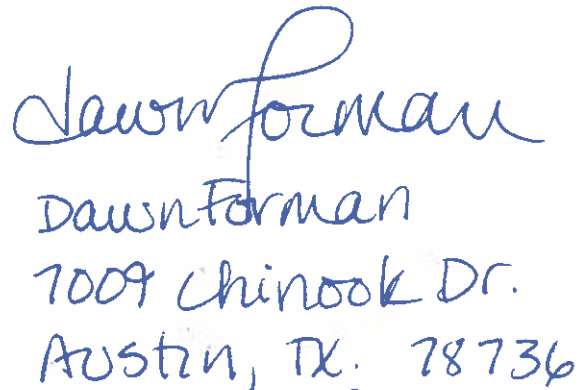 Dawn Forman
Dawn Forman
7009 Chinook Dr.
Austin, TX. 78736